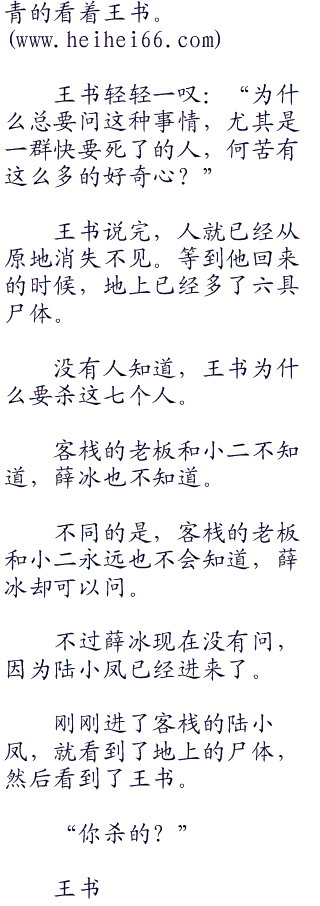 青的看着王书。
(www.heihei66.com)
王书轻轻一叹：“为什
么总要问这种事情，尤其是
一群快要死了的人，何苦有
这么多的好奇心？”
王书说完，人就已经从
原地消失不见。等到他回来
的时候，地上已经多了六具
尸体。
没有人知道，王书为什
么要杀这七个人。
客栈的老板和小二不知
道，薛冰也不知道。
不同的是，客栈的老板
和小二永远也不会知道，薛
冰却可以问。
不过薛冰现在没有问，
因为陆小凤已经进来了。
刚刚进了客栈的陆小
凤，就看到了地上的尸体，
然后看到了王书。
“你杀的？”
王书